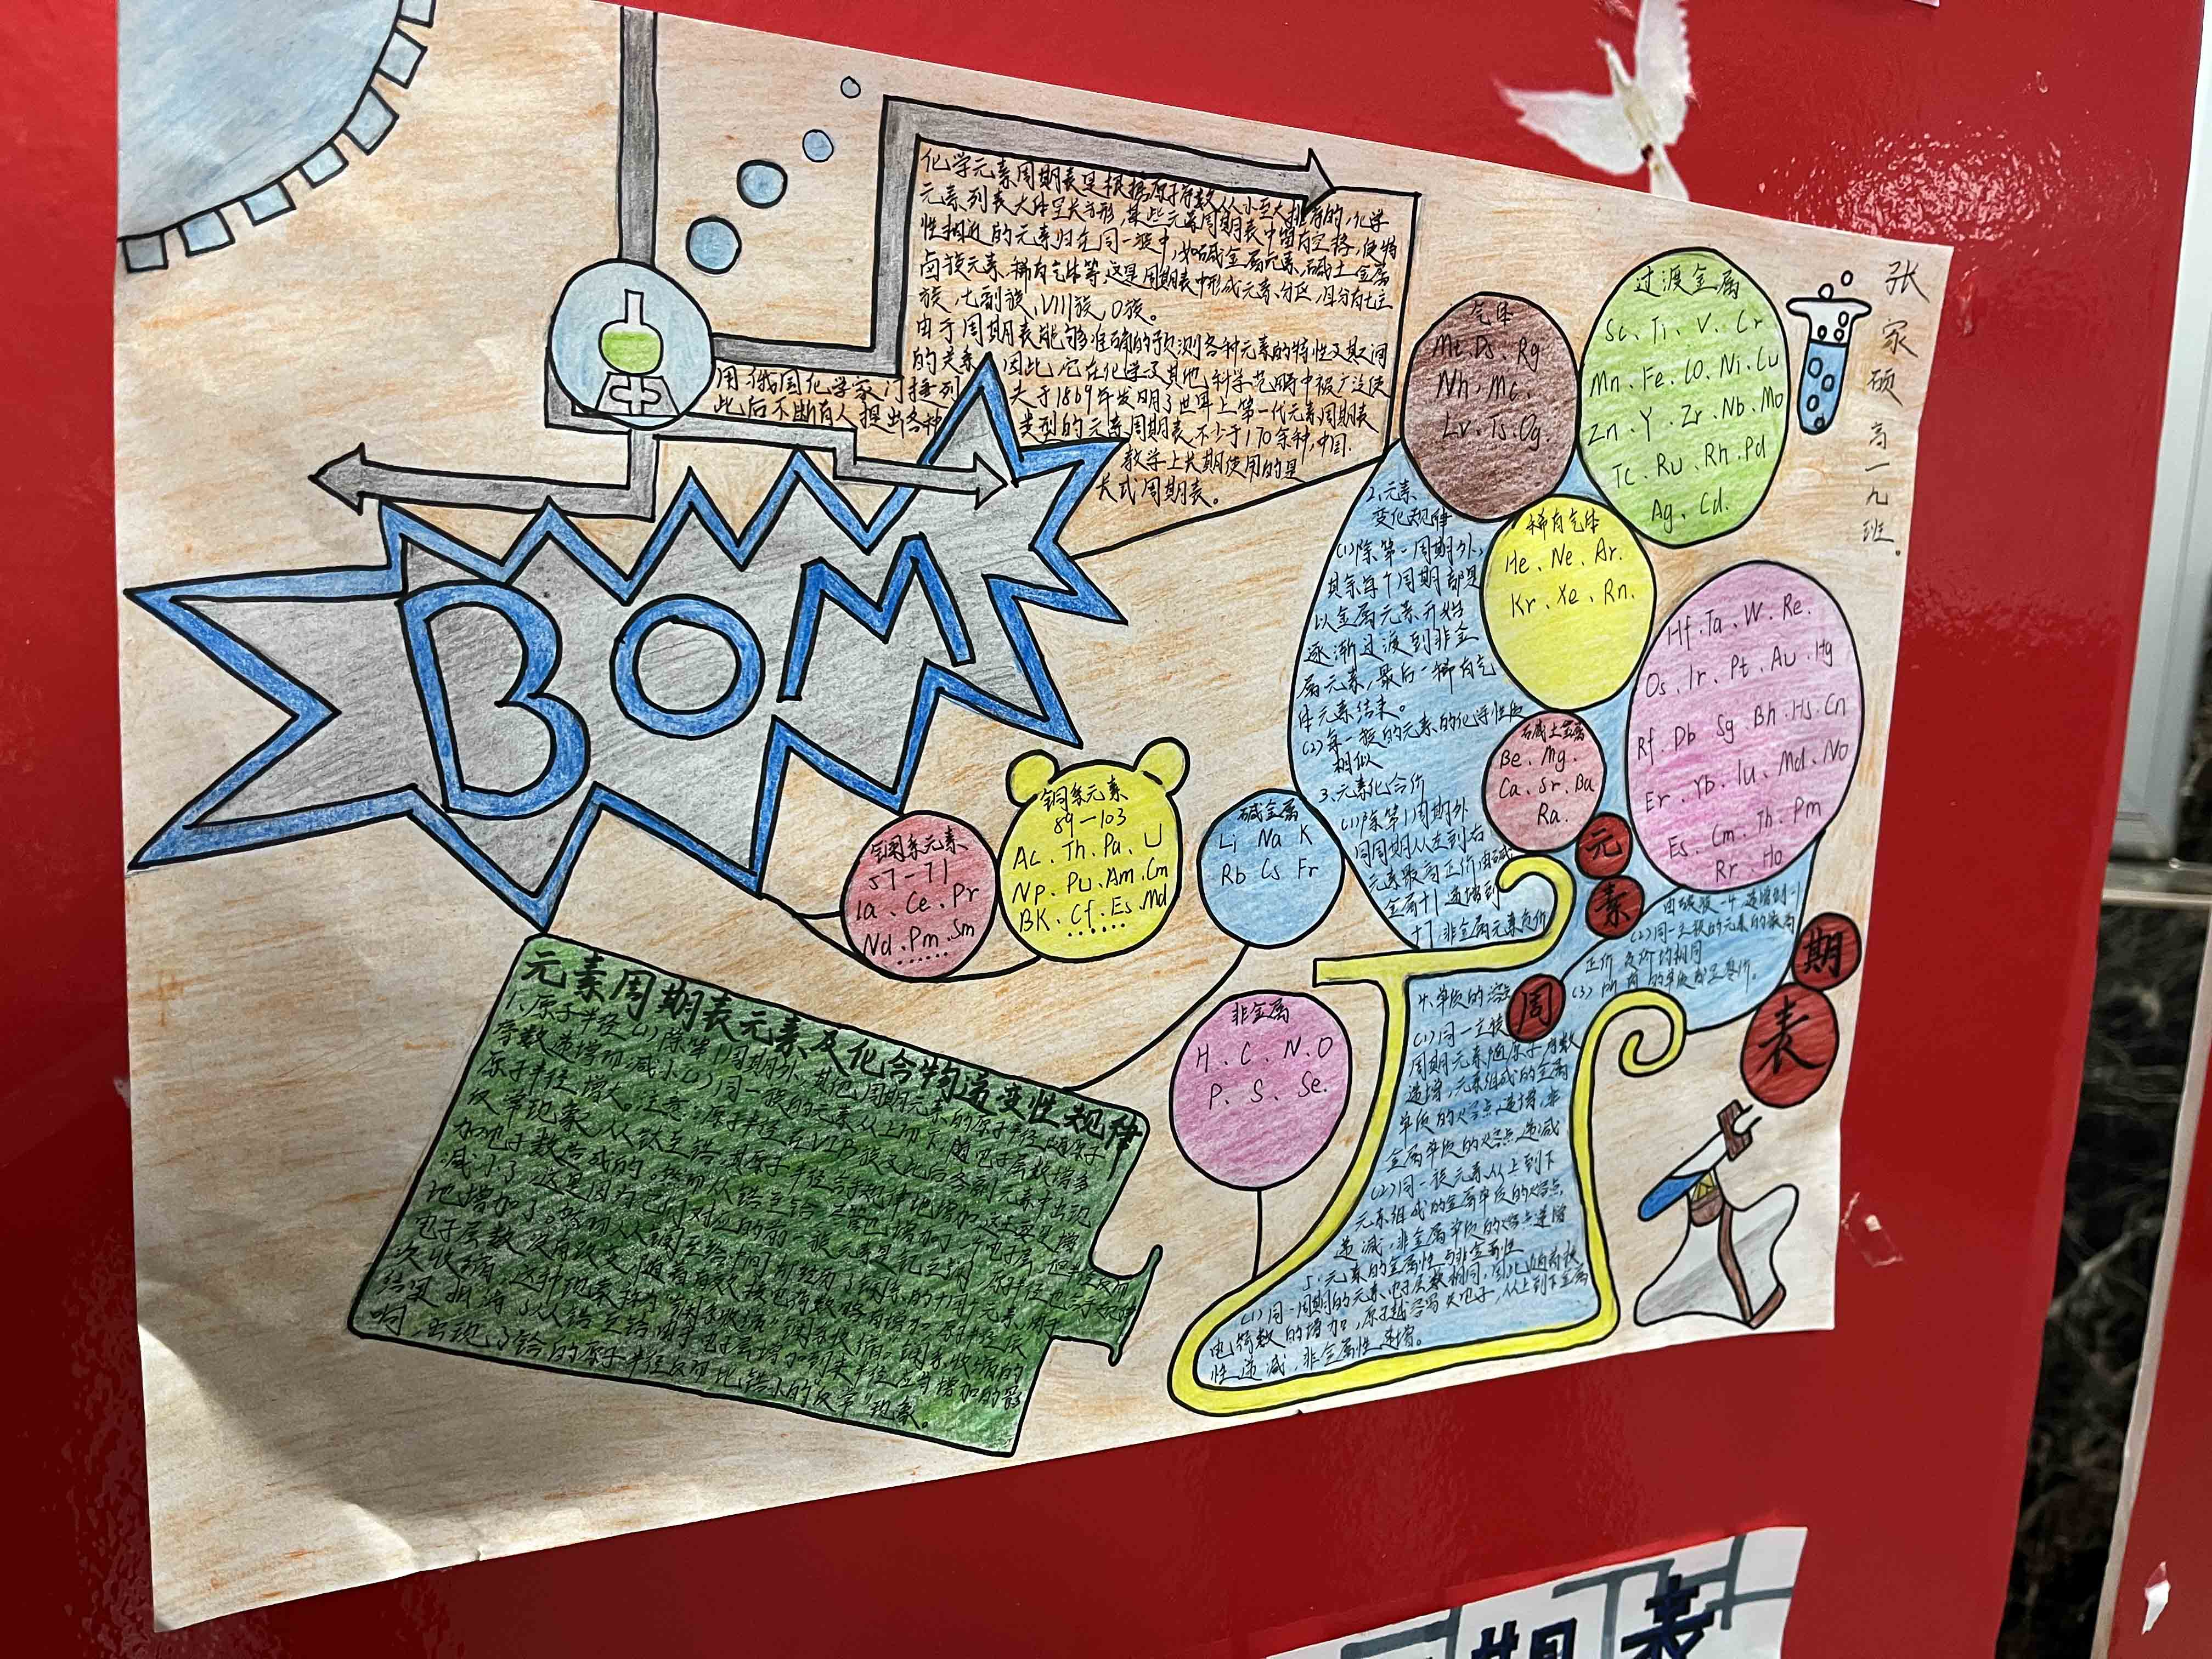 化学元素周期表是根据原子序数从小至大排序的化学
元素列表大体呈长方形,某些元素周期表中留有空格,使特
性相近的元素归在同一族中,如碱金属元素,碱土金属
卤族元素、稀有气体等,这是周期表中形成元素分区,且分有七主
族,七副族,VIII族,0族。
由于周期表能够准确的预测各种元素的特性及其间
的关系,因此,它在化学及其他科学范畴中被广泛使
用,俄国化学家门捷列
夫于1869年发明了世界上第一代元素周期表
此后不断有人提出各种
类型的元素周期表不少于170余种,中国
教学上长期使用的是
长式周期表。
BOM
张家硕 高一九班。
气体
Mt. Ds. Rg
Nh. Mc.
Lv. Ts. Og.
过渡金属
Sc、Ti、V、Cr
Mn、Fe、CO、Ni、Cu
Zn、Y、Zr、Nb、Mo
Tc、Ru、Rh、Pd
Ag、Cd.
稀有气体
He、Ne、Ar.
Kr、Xe、Rn.
Hf、Ta、W、Re.
Os、Ir、Pt、Au、Hg
Rf、Db Sg、Bh、Hs、Cn
Er、Yb、lu、Md、No
Es、Cm、Th、Pm
Rr、Ho
碱土金属
Be、Mg.
Ca、Sr、Ba
Ra.
镧系元素
57-71
la、Ce、Pr
Nd、Pm、Sm
......
锕系元素
89-103
Ac、Th、Pa、U
Np、Pu、Am、Cm
BK、Cf、Es、Md
......
碱金属
Li Na K
Rb Cs Fr
非金属
H、C、N、O
P、S、Se.
元素周期表
2.元素
变化规律
(1)除第一周期外,
其余每个周期都是
以金属元素开始
逐渐过渡到非金
属元素,最后一稀有气
体元素结束。
(2)每一族的元素的化学性质
相似
3.元素化合价
(1)除第1周期外
同周期从左到右
元素最高正价由碱
金属+1递增到
+7,非金属元素负价
由碳族-4递增到-1
(2)同一主族的元素的最高
正价负价均相同
(3)所有的单质都显零价。
4.单质的溶点
(1)同一主族
周期元素随原子序数
递增,元素组成的金属
单质的熔点递增,非
金属单质的熔点递减
(2)同一族元素从上到下
元素组成的金属单质的熔点
递减,非金属单质的熔点递增
5.元素的金属性与非金属性
(1)同一周期的元素电子层数相同,
电荷数的增加,原子越容易失电子,从上到下金属
性递减,非金属性递增。
元素周期表元素及化合物递变性规律
1.原子半径(1)除第1周期外,其他周期元素的原子半径随原子
序数递增而减小(2)同一族的元素从上而下,随电子层数增多
原子半径增大。注意:原子半径在VIB族及此后各副元素中出现
反常现象,从钛至锆,其原子半径合乎规律地增加,这主要是增
加电子数造成的。